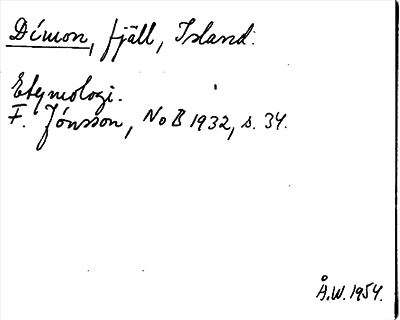 Dímon, fjäll, Island.
Etymologi.
F. Jónsson, NoB 1932, s. 34.
Å.W. 1954.